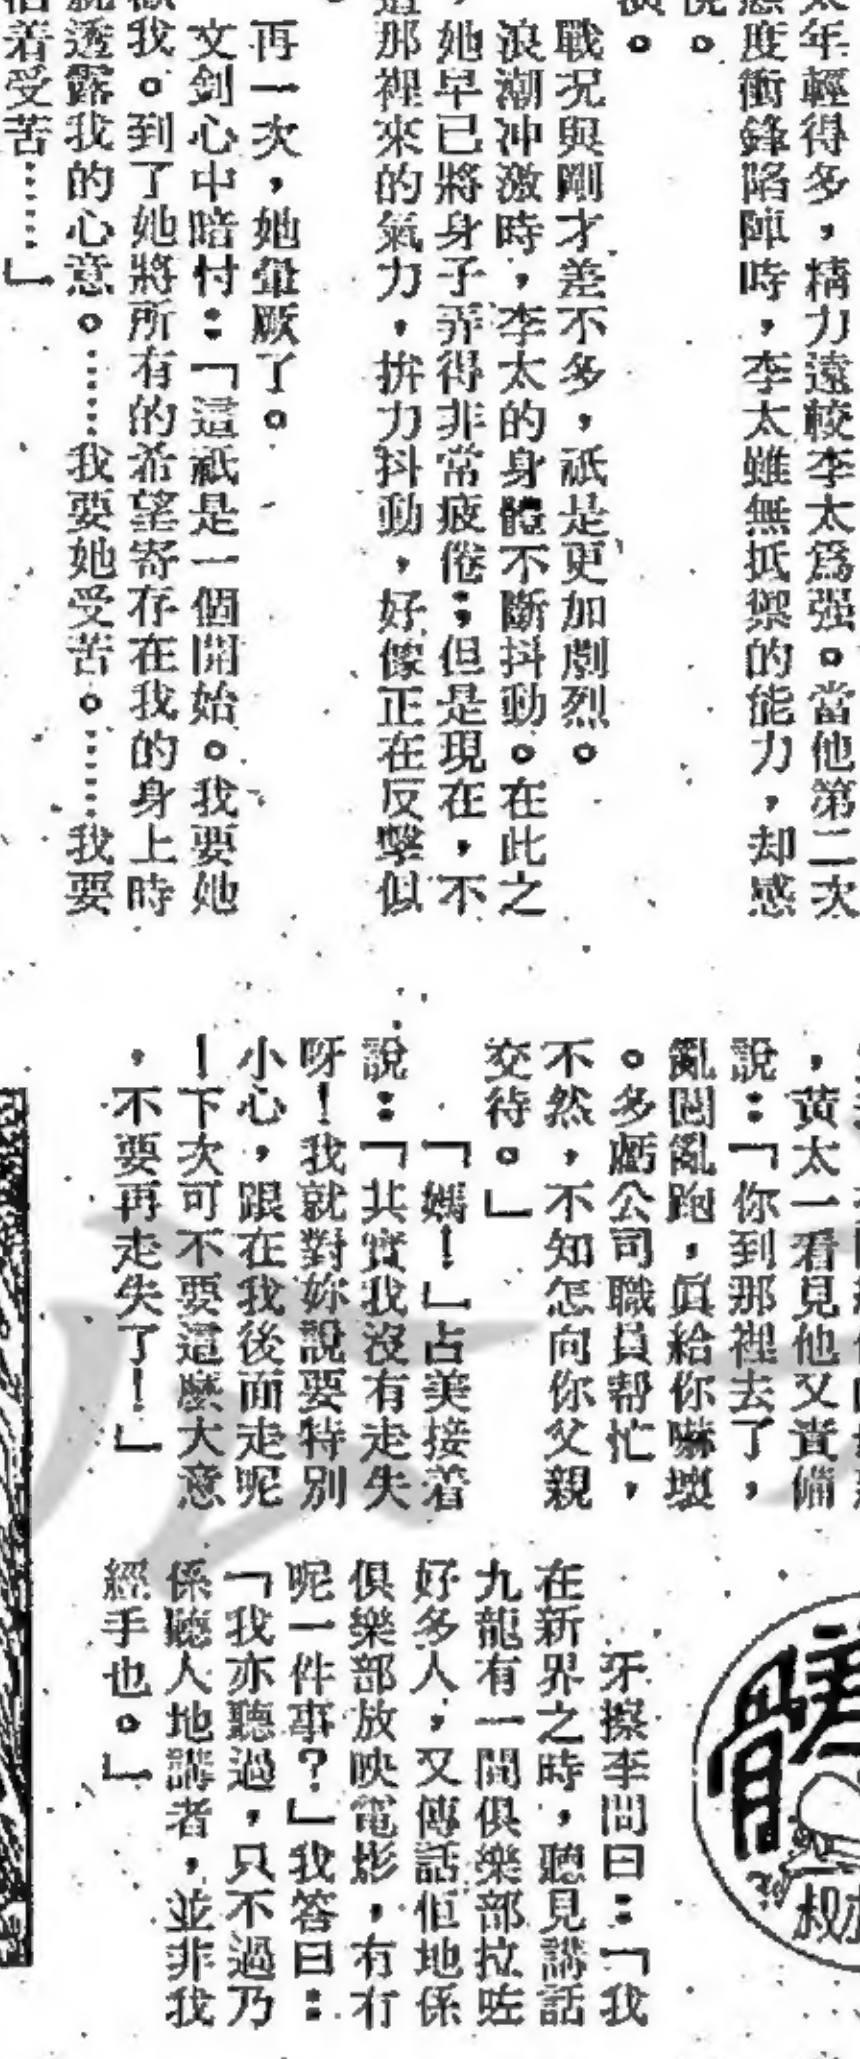 太年輕得多，精力遠較李太爲强。當他第二次
態度衝鋒陷陣時，李太雖無抵禦的能力，却感
戰况與剛才差不多，祇是更加劇烈。
浪潮冲激時，李太的身體不斷抖動。在此之
，她早已將身子弄得非常疲倦；但是現在，不
那裡來的氣力，拚力抖動，好像正在反擊似
再一次，她暈厥了。
文劍心中暗忖：「這祇是一個開始。我要她
我。到了她將所有的希望寄存在我的身上時
透露我的心意。……我要她受苦。……我要
着受苦……」
，黃太一看見他又責備
說：「你到那裡去了，
亂闖亂跑，眞給你嚇壞
。多虧公司職員帮忙，
不然，不知怎向你父親
交待。」
「媽！」占美接着
說：「其實我沒有走失
呀！我就對妳說要特別
小心，跟在我後面走呢
！下次可不要這麽大意
，不要再走失了！」
叔
牙擦李問曰：「我
在新界之時，聽見講話
九龍有一間俱樂部拉咗
好多人，又傳話佢地係
俱樂部放映電影，有冇
呢一件事？」我答曰：
「我亦聽過，只不過乃
係聽人地講者，並非我
經手也。」